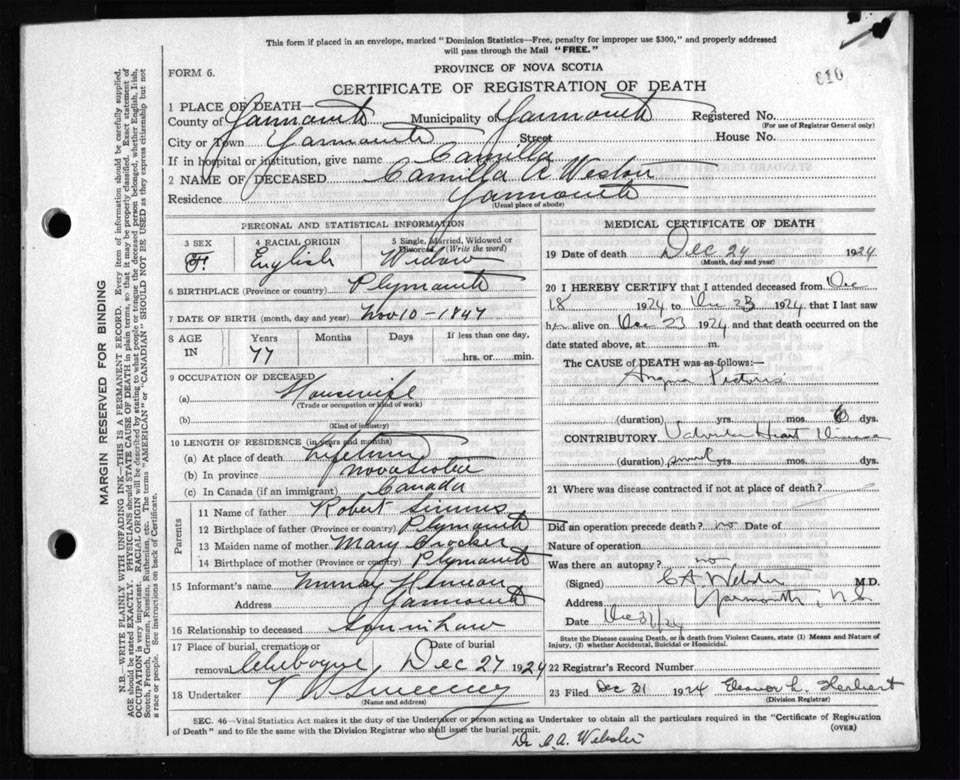 This form if placed in an envelope, marked "Dominion Statistics—Free, penalty for improper use $300," and properly addressed
will pass through the Mail "FREE."
PROVINCE OF NOVA SCOTIA
FORM 6.
010
CERTIFICATE OF REGISTRATION OF DEATH
1 PLACE OF DEATH—
County of Yarmouth Municipality of Yarmouth Registered No.
(For use of Registrar General only)
City or Town Yarmouth Street House No.
If in hospital or institution, give name Camilla
2 NAME OF DECEASED Camilla A Weston
Residence Yarmouth
(Usual place of abode)
PERSONAL AND STATISTICAL INFORMATION
3 SEX 4 RACIAL ORIGIN 5 Single, Married, Widowed or Divorced (Write the word)
F. English Widow
6 BIRTHPLACE (Province or country) Plymouth
7 DATE OF BIRTH (month, day and year) Nov 10 - 1847
8 AGE IN Years Months Days If less than one day,
77 hrs. or min.
9 OCCUPATION OF DECEASED
(a) Housewife
(Trade or occupation or kind of work)
(b)
(Kind of industry)
10 LENGTH OF RESIDENCE (in years and months)
(a) At place of death Lifetime
(b) In province Nova Scotia
(c) In Canada (if an immigrant) Canada
Parents
11 Name of father Robert Simms
12 Birthplace of father (Province or country) Plymouth
13 Maiden name of mother Mary Crocker
14 Birthplace of mother (Province or country) Plymouth
15 Informant's name
Address Yarmouth
16 Relationship to deceased Son in law
17 Place of burial, cremation or removal Chebogue Date of burial Dec 27 1924
18 Undertaker V W Sweeney
(Name and address)
MEDICAL CERTIFICATE OF DEATH
19 Date of death Dec 24 1924
(Month, day and year)
20 I HEREBY CERTIFY that I attended deceased from Dec
18 1924 to Dec 23 1924, that I last saw
her alive on Dec 23 1924 and that death occurred on the
date stated above, at m.
The CAUSE of DEATH was as follows:—
Angina Pectoris
(duration) yrs. mos. 6 dys.
CONTRIBUTORY Valvular Heart Disease
(duration) several yrs. mos. dys.
21 Where was disease contracted if not at place of death?
Did an operation precede death? no Date of
Nature of operation
Was there an autopsy? no
(Signed) C A Webster M.D.
Address Yarmouth, N.S.
Date Dec 31/24
State the Disease causing Death, or in death from Violent Causes, state (1) Means and Nature of
Injury, (2) whether Accidental, Suicidal or Homicidal.
22 Registrar's Record Number
23 Filed Dec 31 1924 Eleanor L. Herbert
(Division Registrar)
SEC. 46—Vital Statistics Act makes it the duty of the Undertaker or person acting as Undertaker to obtain all the particulars required in the "Certificate of Registration
of Death" and to file the same with the Division Registrar who shall issue the burial permit.
(OVER)
Dr. C. A. Webster
MARGIN RESERVED FOR BINDING
N.B.—WRITE PLAINLY WITH UNFADING INK—THIS IS A PERMANENT RECORD. Every item of information should be carefully supplied.
AGE should be stated EXACTLY. PHYSICIANS should STATE CAUSE OF DEATH in plain terms, so that it may be properly classified. Exact statement of
OCCUPATION is very important. RACIAL ORIGIN will be described by stating to what people or tongue the deceased person belonged, whether English, Irish,
Scotch, French, German, Russian, Ruthenian, etc. The terms "AMERICAN" or "CANADIAN" SHOULD NOT BE USED as they express citizenship but not
a race or people. See instructions on back of Certificate.